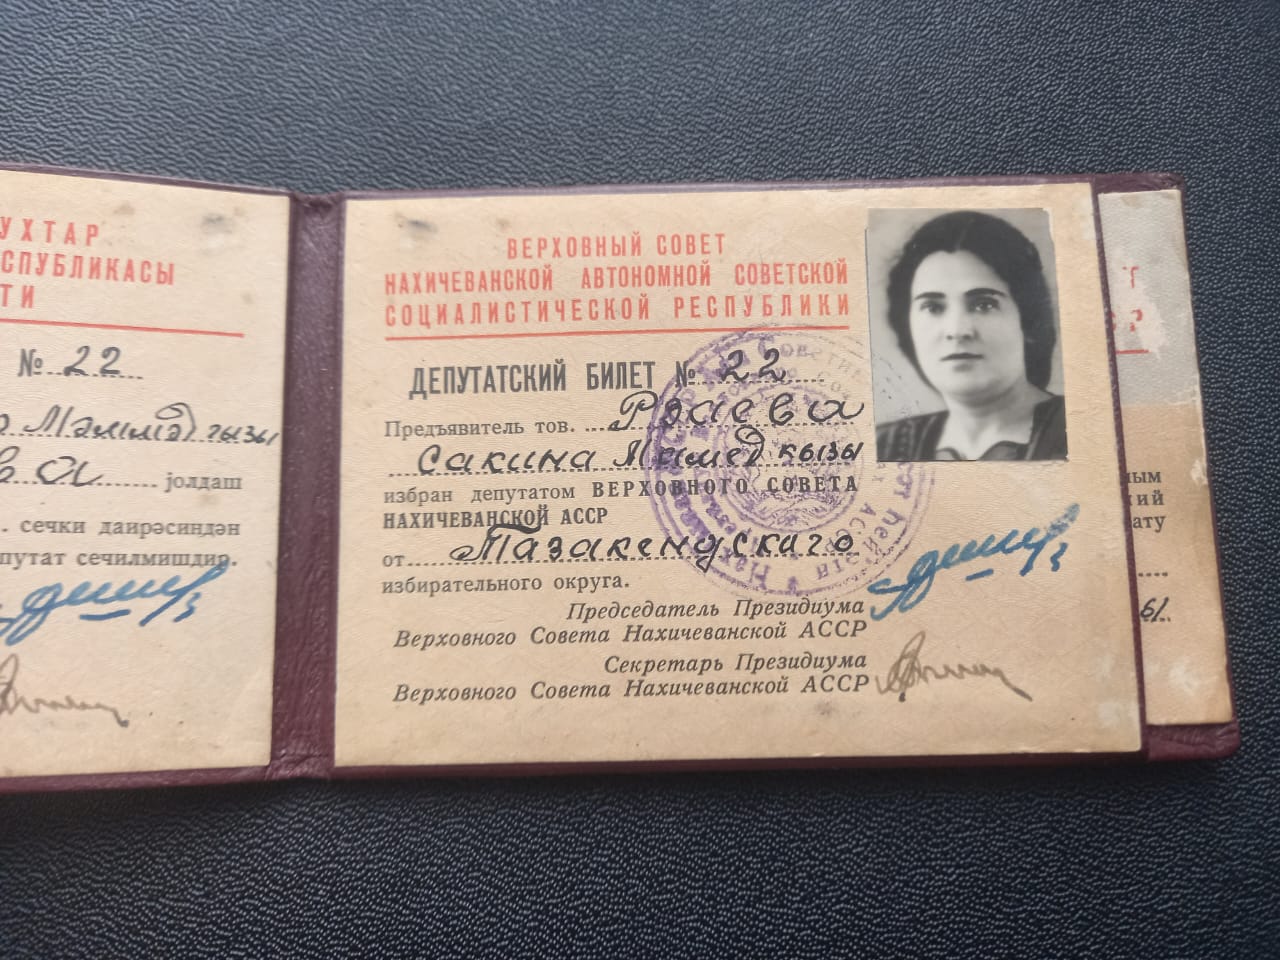 УХТАР
СПУБЛИКАСЫ
ТИ
№ 22
Мәммәд гызы
ва јолдаш
. сечки даирәсиндән
путат сечилмишдир.
ВЕРХОВНЫЙ СОВЕТ
НАХИЧЕВАНСКОЙ АВТОНОМНОЙ СОВЕТСКОЙ
СОЦИАЛИСТИЧЕСКОЙ РЕСПУБЛИКИ
ДЕПУТАТСКИЙ БИЛЕТ № 22
Предъявитель тов. Рзаева
Сакина Мамед кызы
избран депутатом ВЕРХОВНОГО СОВЕТА
НАХИЧЕВАНСКОЙ АССР
от Тазакендского
избирательного округа.
Председатель Президиума
Верховного Совета Нахичеванской АССР
Секретарь Президиума
Верховного Совета Нахичеванской АССР
ным
кий
ату